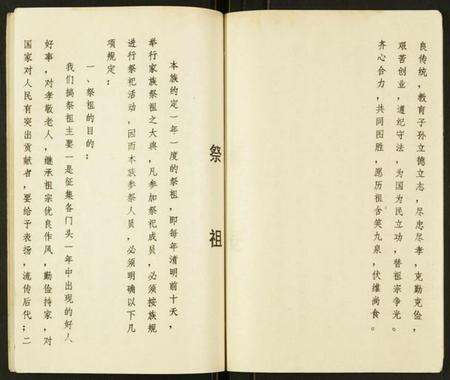 良传统，教育子孙立德立志，尽忠尽孝，克勤克俭，
艰苦创业，遵纪守法，为国为民立功，替祖宗争光。
齐心合力，共同图胜，愿历祖含笑九泉，伏维尚食。
祭祖
本族约定一年一度的祭祖，即每年清明前十天，
举行家族祭祖之大典，凡参加祭祀成员，必须按族规
进行祭祀活动，因而本族参祭人员，必须明确以下几
项规定：
一、祭祖的目的：
我们搞祭祖主要一是征集各门头一年中出现的好人
好事，对孝敬老人，继承祖宗优良作风，勤俭持家，对
国家对人民有突出贡献者，要给予表扬，流传后代；二